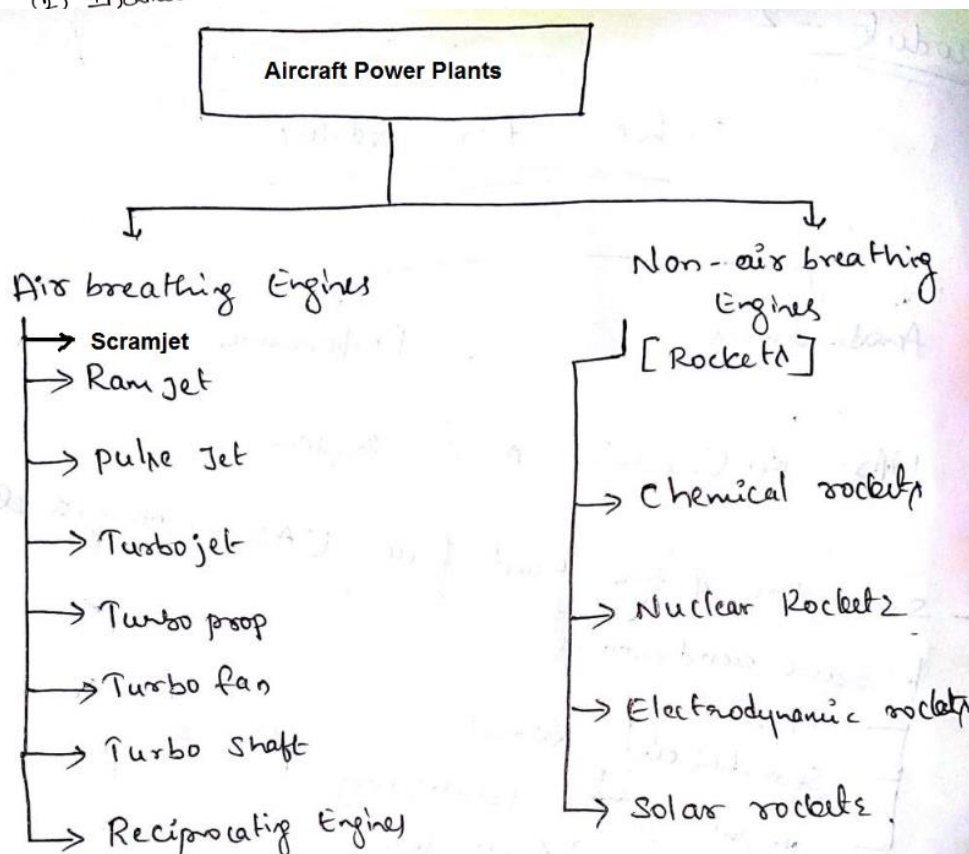 Aircraft Power Plants
Air breathing Engines
Scramjet
Ram jet
pulse Jet
Turbojet
Turbo prop
Turbo fan
Turbo shaft
Reciprocating Engines
Non-air breathing
Engines
[Rockets]
Chemical rockets
Nuclear Rockets
Electrodynamic rockets
Solar rockets.